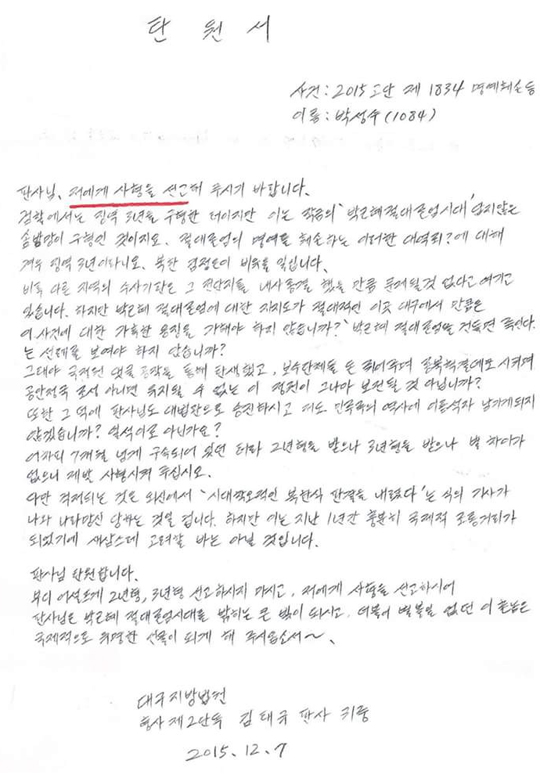 탄 원 서
사건 : 2015 고단 제 1834 명예훼손 등
이름 : 박성수 (1084)
판사님, 저에게 사형을 선고해 주시기 바랍니다.
검찰에서는 징역 3년을 구형한 터이지만 이는 작금의 '박근혜 절대존엄시대' 답지않은
솜방망이 구형인 것이지요. 절대존엄의 명예를 훼손하는 이러한 대역죄?에 대해
겨우 징역 3년이라니오. 북한 김정은이 비웃을 일입니다.
비록 다른 지역의 수사기관은 그 전단지를 내사종결 했을 만큼 문제될 것 없다고 여기고
있습니다. 하지만 박근혜 절대존엄에 대한 지지도가 절대적인 이곳 대구에서 만큼은
이 사건에 대한 가혹한 응징을 가해야 하지 않습니까? '박근혜 절대존엄을 건들면 죽인다.'
는 선례를 보여야 하지 않습니까?
그래야 국정원 댓글 조작을 통해 탄생했고, 보수단체를 돈
공안정국 로서 아니면 유지될 수 없는 이 정권이 그나마 보전될 것 아닙니까?
또한 그 덕에 판사님도 대법관으로 승진하시고 저도 민족의 역사에 이름석자 남기게되지
않겠습니까? 일석이조 아닌가요?
어차피 7개월 넘게 구속되어 있던 터라 2년형을 받으나 3년형을 받으나 별 차이가
없으니 제발 사형시켜 주십시오.
다만 걱정되는 것은 외신에서 '시대착오적인 북한식 판결을 내렸다'는 식의 기사가
나와 나라망신 당하는 것일 겁니다. 하지만 이는 지난 1년간 충분히 국제적 조롱거리가
되었기에 새삼스레 고려할 바는 아닐 것입니다.
판사님 탄원합니다.
부디 어설프게 2년형, 3년형 선고하시지 마시고, 저에게 사형을 선고하시어
판사님은 박근혜 절대존엄시대를 밝히는 큰 빛이 되시고, 더불어 별볼일 없던 이 촌놈은
국제적으로 유명한 인물이 되게 해 주시옵소서~.
대구지방법원
형사 제2단독 김태규 판사 귀중
2015. 12. 7